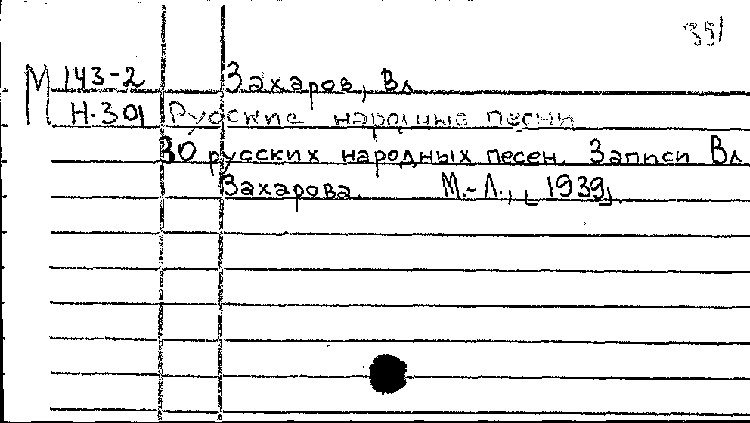 351
М 143-2 Захаров, Вл
Н-301 Русские народные песни
30 русских народных песен. Записи Вл
Захарова. М.-Л., [1939]